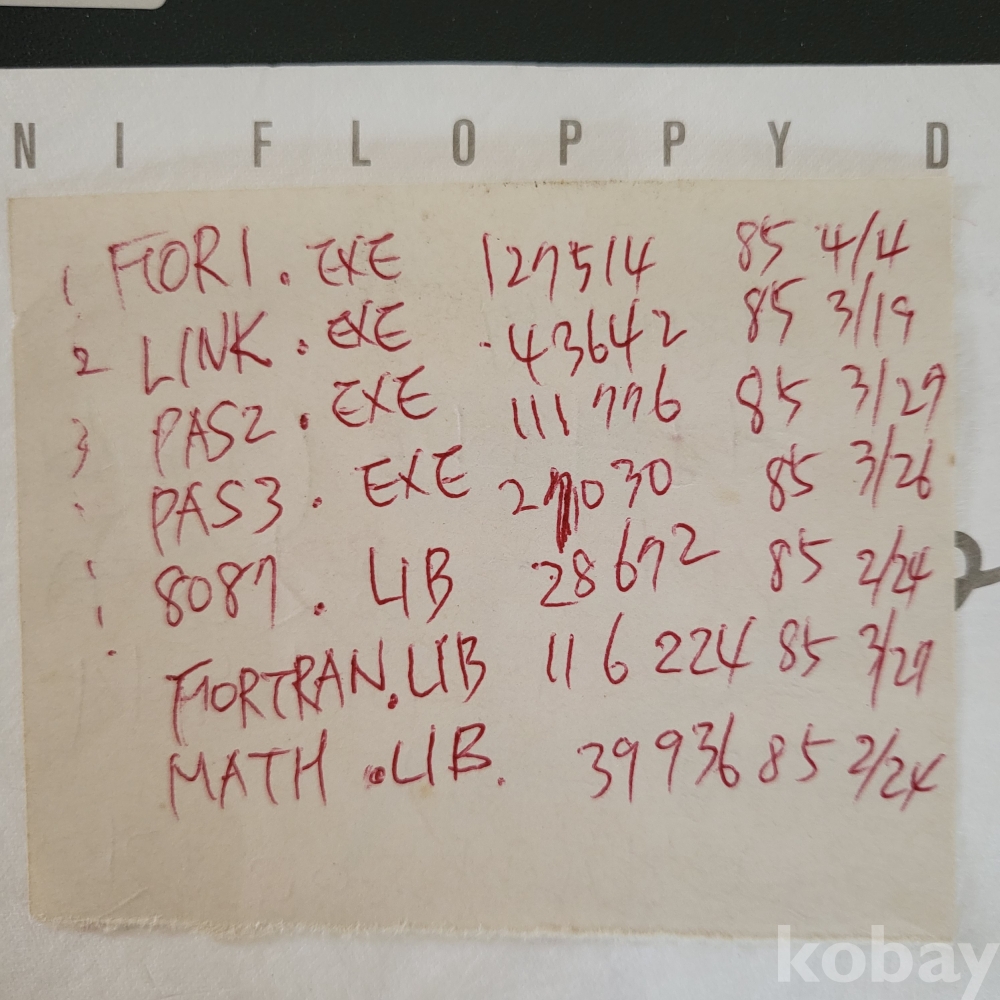 NI FLOPPY D
1 FOR1.EXE 127514 85 4/4
2 LINK.EXE 43642 85 3/19
3 PAS2.EXE 111776 85 3/29
PAS3.EXE 85 3/26
8087.LIB 28672 85 2/24
FORTRAN.LIB 116224 85 3/27
MATH.LIB. 39936 85 2/24
kobay